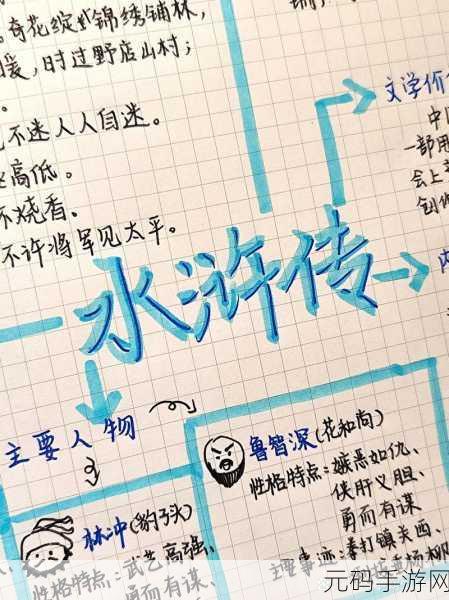 奇花绽锦绣铺林,
时过野店山村;
不迷人人自迷。
高低。
不烧香。
不许将军见太平。
文学价
中
一部用
会上
创
水浒传
主要人物
鲁智深(花和尚)
性格特点:嫉恶如仇、
侠肝义胆、
勇而有谋
事迹:拳打镇关西、
林冲(豹子头)
武艺高强、
性格特点:
勇而有谋、
元码手游网